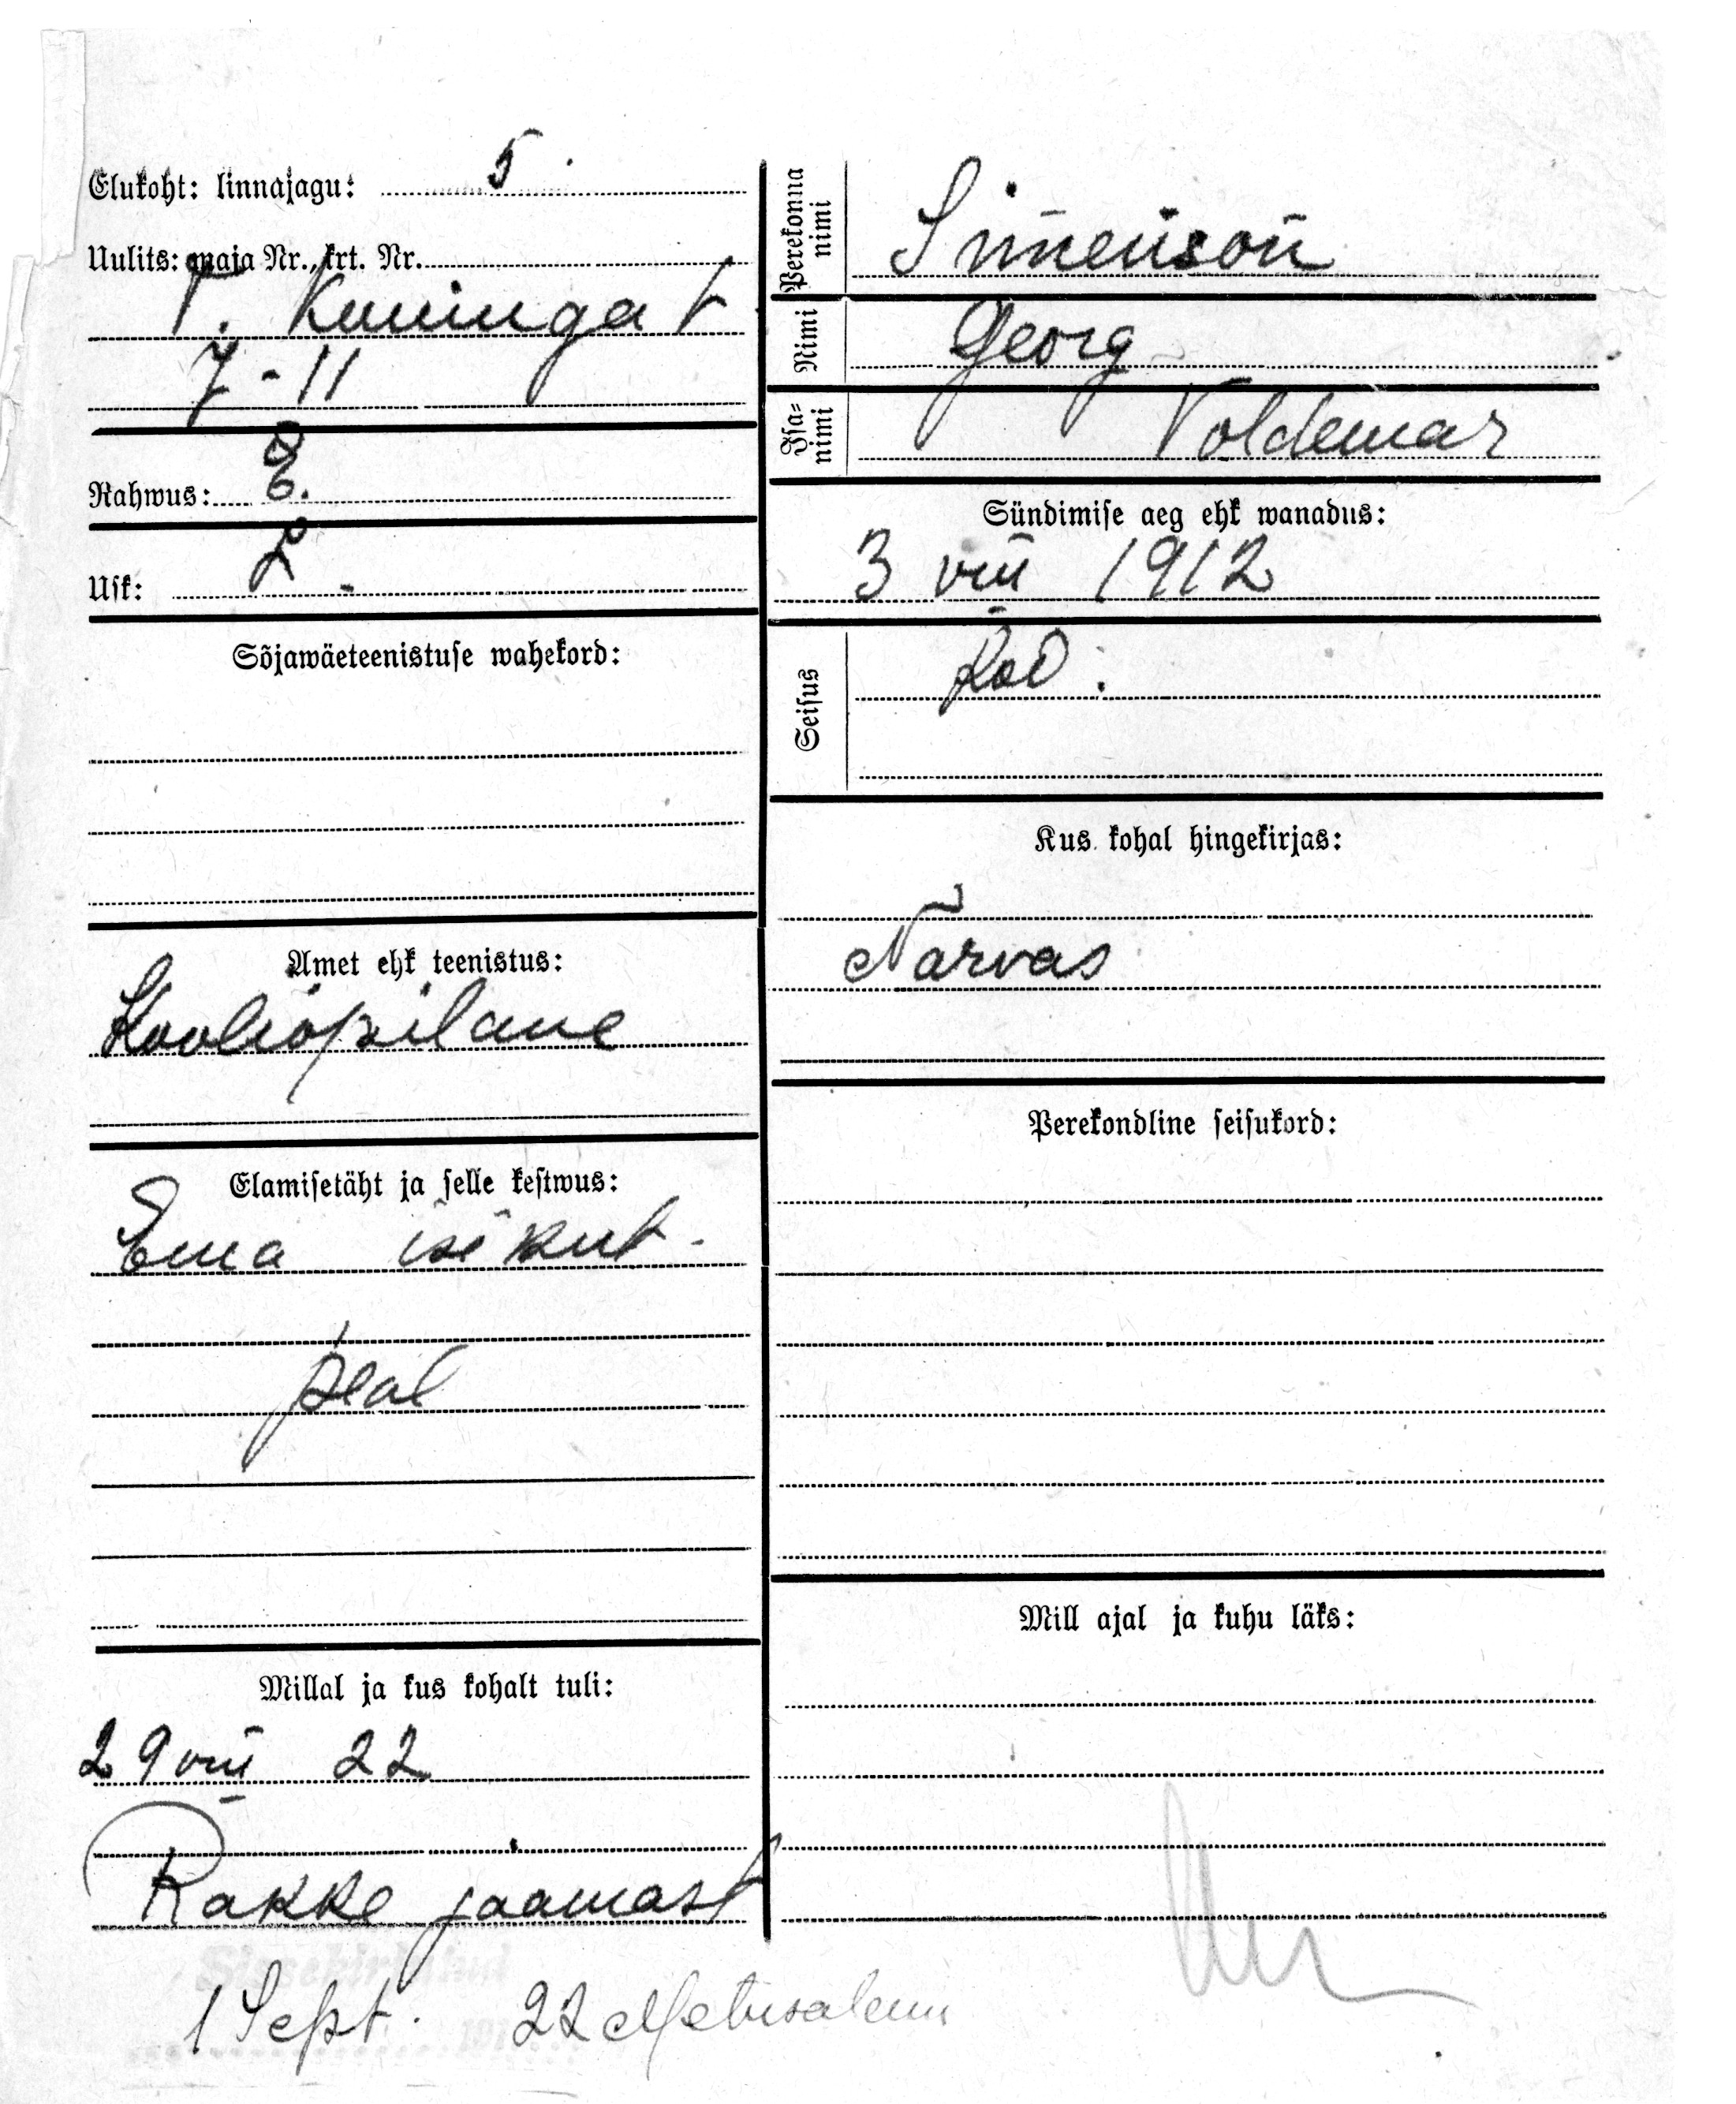 Elukoht: linnajagu: 5.
Uulits: maja Nr., krt. Nr.
T. Kuningat
7-11
Rahwus: E.
Usk: L.
Sõjawäeteenistuse wahekord:
Amet ehk teenistus:
Kooliõpilane
Elamisetäht ja selle kestwus:
Ema isikut.
peal
Millal ja kus kohalt tuli:
29 VIII 22
Rakke jaamast
Perekonna
nimi
Simenson
Nimi Georg
Isa-
nimi
Voldemar
Sündimise aeg ehk wanadus:
3 VIII 1912
Seisus Kod:
Kus kohal hingekirjas:
Narvas
Perekondline seisukord:
Mill ajal ja kuhu läks:
Sissekirjutud
1 Sept. 22 Metusalem